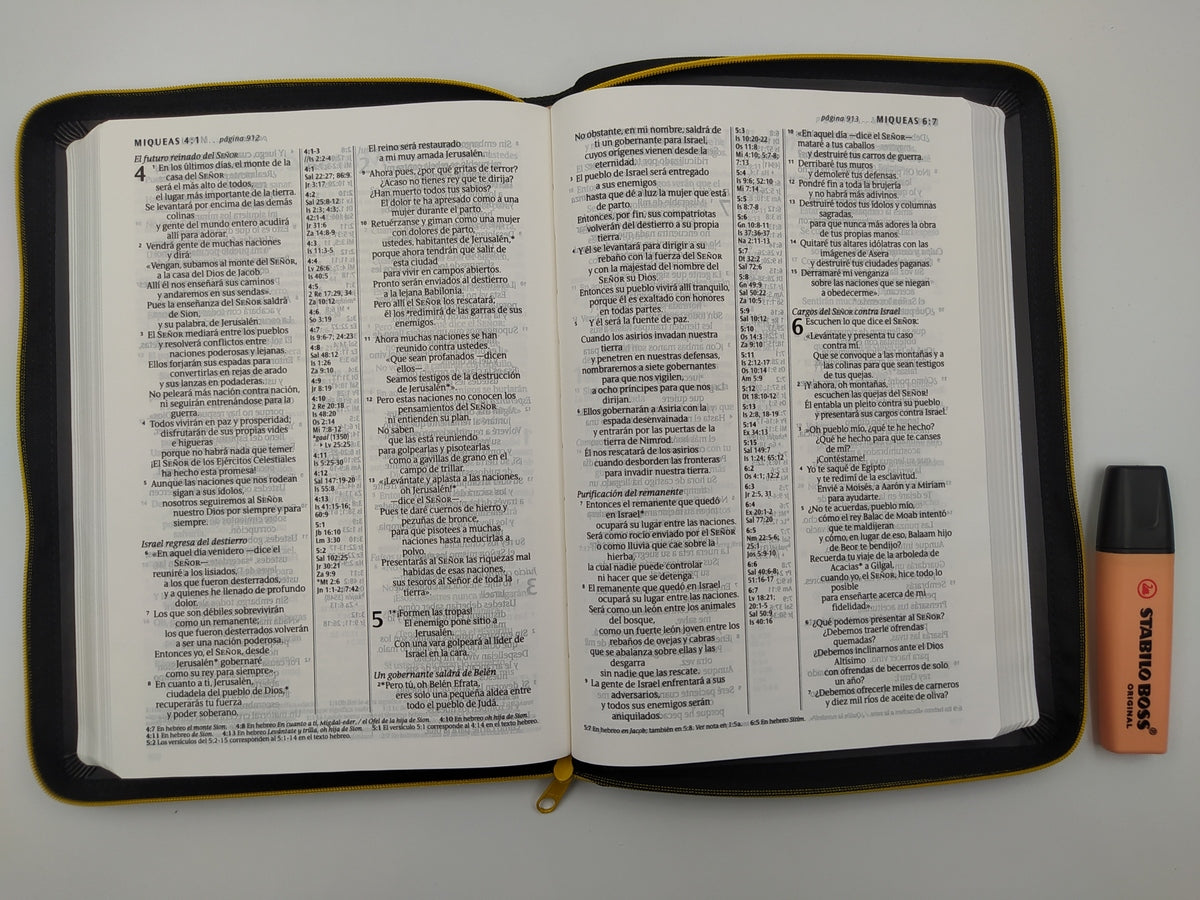 MIQUEAS 4:1 página 912
El futuro reinado del SEÑOR
4 1 En los últimos días, el monte de la
casa del SEÑOR
será el más alto de todos,
el lugar más importante de la tierra.
Se levantará por encima de las demás
colinas
y gente del mundo entero acudirá
allí para adorar.
2 Vendrá gente de muchas naciones
y dirá:
«Vengan, subamos al monte del SEÑOR,
a la casa del Dios de Jacob.
Allí él nos enseñará sus caminos
y andaremos en sus sendas».
Pues la enseñanza del SEÑOR saldrá
de Sion,
y su palabra, de Jerusalén.
3 El SEÑOR mediará entre los pueblos
y resolverá conflictos entre
naciones poderosas y lejanas.
Ellos forjarán sus espadas para
convertirlas en rejas de arado
y sus lanzas en podaderas.
No peleará más nación contra nación,
ni seguirán entrenándose para la
guerra.
4 Todos vivirán en paz y prosperidad;
disfrutarán de sus propias vides
e higueras
porque no habrá nada que temer.
¡El SEÑOR de los Ejércitos Celestiales
ha hecho esta promesa!
5 Aunque las naciones que nos rodean
sigan a sus ídolos,
nosotros seguiremos al SEÑOR
nuestro Dios por siempre y para
siempre.
Israel regresa del destierro
6 «En aquel día venidero —dice el
SEÑOR—
reuniré a los lisiados,
a los que fueron desterrados,
y a quienes he llenado de profundo
dolor.
7 Los que son débiles sobrevivirán
como un remanente;
los que fueron desterrados volverán
a ser una nación poderosa.
Entonces yo, el SEÑOR, desde
Jerusalén* gobernaré
como su rey para siempre».
8 En cuanto a ti, Jerusalén,
ciudadela del pueblo de Dios,*
recuperarás tu fuerza
y poder soberano.
4:1-3
//Is 2:2-4
4:1
Sal 22:27; 86:9
Jr 3:17
4:2
Sal 25:8-12
Is 2:3; 4:3;
42:1-4
Jr 31:6
Za 14:8-9
4:3
Is 11:3-5
4:4
Lv 26:6
Is 40:5
4:5
2 Re 17:29, 34
Za 10:12
4:6
So 3:19
4:7
Is 9:6-7; 24:23
4:8
Sal 48:12
Is 1:26
Za 9:10
4:9
Jr 8:19
4:10
2 Re 20:18
Is 48:20
Os 2:14
Mi 7:8-12
*gaal (1350)
Lv 25:25
4:11
Is 5:25-30
4:12
Sal 147:19-20
Is 55:8
4:13
Is 41:15-16;
60:9
5:1
Jb 16:10
Lm 3:30
5:2
Sal 102:25
Jr 30:21
Za 9:9
*Mt 2:6
Jn 1:1-2; 7:42
El reino será restaurado
a mi muy amada Jerusalén.
9 Ahora pues, ¿por qué gritas de terror?
¿Acaso no tienes rey que te dirija?
¿Han muerto todos tus sabios?
El dolor te ha apresado como a una
mujer durante el parto.
10 Retuérzanse y giman como una mujer
con dolores de parto,
ustedes, habitantes de Jerusalén,*
porque ahora tendrán que salir de
esta ciudad
para vivir en campos abiertos.
Pronto serán enviados al destierro
a la lejana Babilonia.
Pero allí el SEÑOR los rescatará,
él los *redimirá de las garras de sus
enemigos.
11 Ahora muchas naciones se han
reunido contra ustedes.
«Que sean profanados —dicen
ellos—.
Seamos testigos de la destrucción
de Jerusalén*».
12 Pero estas naciones no conocen los
pensamientos del SEÑOR
ni entienden su plan.
No saben
que las está reuniendo
para golpearlas y pisotearlas
como a gavillas de grano en el
campo de trillar.
13 «¡Levántate y aplasta a las naciones,
oh Jerusalén!*
—dice el SEÑOR—.
Pues te daré cuernos de hierro y
pezuñas de bronce,
para que pisotees a muchas
naciones hasta reducirlas a
polvo.
Presentarás al SEÑOR las riquezas mal
habidas de esas naciones,
sus tesoros al Señor de toda la
tierra».
5 1*¡Formen las tropas!
El enemigo pone sitio a
Jerusalén.
Con una vara golpeará al líder de
Israel en la cara.
Un gobernante saldrá de Belén
2*Pero tú, oh Belén Efrata,
eres solo una pequeña aldea entre
todo el pueblo de Judá.
4:7 En hebreo el monte Sion. 4:8 En hebreo En cuanto a ti, Migdal-eder, / el Ofel de la hija de Sion. 4:10 En hebreo oh hija de Sion.
4:11 En hebreo de Sion. 4:13 En hebreo Levántate y trilla, oh hija de Sion. 5:1 El versículo 5:1 corresponde al 4:14 en el texto hebreo.
5:2 Los versículos del 5:2-15 corresponden al 5:1-14 en el texto hebreo.
página 913 MIQUEAS 6:7
No obstante, en mi nombre, saldrá de
ti un gobernante para Israel,
cuyos orígenes vienen desde la
eternidad.
3 El pueblo de Israel será entregado
a sus enemigos
hasta que dé a luz la mujer que está
de parto.
Entonces, por fin, sus compatriotas
volverán del destierro a su propia
tierra.
4 Y él se levantará para dirigir a su
rebaño con la fuerza del SEÑOR
y con la majestad del nombre del
SEÑOR su Dios.
Entonces su pueblo vivirá allí tranquilo,
porque él es exaltado con honores
en todas partes.
5 Y él será la fuente de paz.
Cuando los asirios invadan nuestra
tierra
y penetren en nuestras defensas,
nombraremos a siete gobernantes
para que nos vigilen,
a ocho príncipes para que nos
dirijan.
6 Ellos gobernarán a Asiria con la
espada desenvainada
y entrarán por las puertas de la
tierra de Nimrod.
Él nos rescatará de los asirios
cuando desborden las fronteras
para invadir nuestra tierra.
Purificación del remanente
7 Entonces el remanente que quedó
en Israel*
ocupará su lugar entre las naciones.
Será como rocío enviado por el SEÑOR
o como lluvia que cae sobre la
hierba,
la cual nadie puede controlar
ni hacer que se detenga.
8 El remanente que quedó en Israel
ocupará su lugar entre las naciones.
Será como un león entre los animales
del bosque,
como un fuerte león joven entre los
rebaños de ovejas y cabras
que se abalanza sobre ellas y las
desgarra
sin nadie que las rescate.
9 La gente de Israel enfrentará a sus
adversarios,
y todos sus enemigos serán
aniquilados.
5:3
Is 10:20-22
Os 11:8
Mi 4:10; 5:7-8;
7:13
5:4
Is 9:6; 52:10
Mi 7:14
5:5
Is 8:7-8
5:6
Gn 10:8-11
Is 37:36-37
Na 2:11-13
5:7
Dt 32:2
Sal 72:6
5:8
Gn 49:9
Sal 50:22
Za 10:5
5:9
Sal 10:12
5:10
Os 14:3
Za 9:10
5:11
Is 2:12-17
Os 10:14
Am 5:9
5:12
Dt 18:10-12
5:13
Is 2:8, 18-19
5:14
Ex 34:13
5:15
Sal 149:7
Is 1:24; 65:12
6:2
Os 4:1; 12:2
6:3
Jr 2:5, 31
6:4
Ex 20:1-2
Sal 77:20
6:5
Nm 22:5-6;
25:1
Jos 5:9-10
6:6
Sal 40:6-8;
51:16-17
6:7
Lv 18:21;
20:1-5
Sal 50:9
Is 40:16
10 «En aquel día —dice el SEÑOR—
mataré a tus caballos
y destruiré tus carros de guerra.
11 Derribaré tus muros
y demoleré tus defensas.
12 Pondré fin a toda la brujería
y no habrá más adivinos.
13 Destruiré todos tus ídolos y columnas
sagradas,
para que nunca más adores la obra
de tus propias manos.
14 Quitaré tus altares idólatras con las
imágenes de Asera
y destruiré tus ciudades paganas.
15 Derramaré mi venganza
sobre las naciones que se niegan
a obedecerme».
Cargos del SEÑOR contra Israel
6 Escuchen lo que dice el SEÑOR:
«Levántate y presenta tu caso
contra mí.
Que se convoque a las montañas y a
las colinas para que sean testigos
de tus quejas.
2 ¡Y ahora, oh montañas,
escuchen las quejas del SEÑOR!
Él entabla un pleito contra su pueblo
y presentará sus cargos contra Israel.
3 »Oh pueblo mío, ¿qué te he hecho?
¿Qué he hecho para que te canses
de mí?
¡Contéstame!
4 Yo te saqué de Egipto
y te redimí de la esclavitud.
Envié a Moisés, a Aarón y a Miriam
para ayudarte.
5 ¿No te acuerdas, pueblo mío,
cómo el rey Balac de Moab intentó
que te maldijeran
y cómo, en lugar de eso, Balaam hijo
de Beor te bendijo?
Recuerda tu viaje de la arboleda de
Acacias* a Gilgal,
cuando yo, el SEÑOR, hice todo lo
posible
para enseñarte acerca de mi
fidelidad».
6 ¿Qué podemos presentar al SEÑOR?
¿Debemos traerle ofrendas
quemadas?
¿Debemos inclinarnos ante el Dios
Altísimo
con ofrendas de becerros de solo
un año?
7 ¿Debemos ofrecerle miles de carneros
y diez mil ríos de aceite de oliva?
5:7 En hebreo en Jacob; también en 5:8. Ver nota en 1:5a. 6:5 En hebreo Sitim.
STABILO BOSS®
ORIGINAL